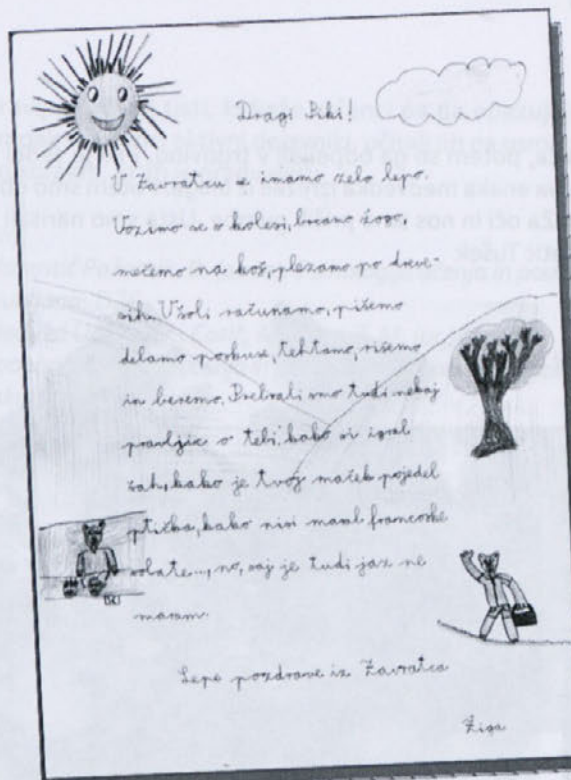 Dragi Piki!
V Zavratcu, i imamo zelo lepo.
Vozimo se s kolesi, brcamo žogo,
mečemo na koš, plezamo po dreve-
sih. V šoli računamo, pišemo
delamo poskuse, tehtamo, rišemo
in beremo. Prebrali smo tudi nekaj
pravljic o tebi: kako si igral
šah, kako je tvoj maček pojedel
ptička, kako nisi maral francoske
solate..., no, saj je tudi jaz ne
maram.
Lepe pozdrave iz Zavratca
Žiga